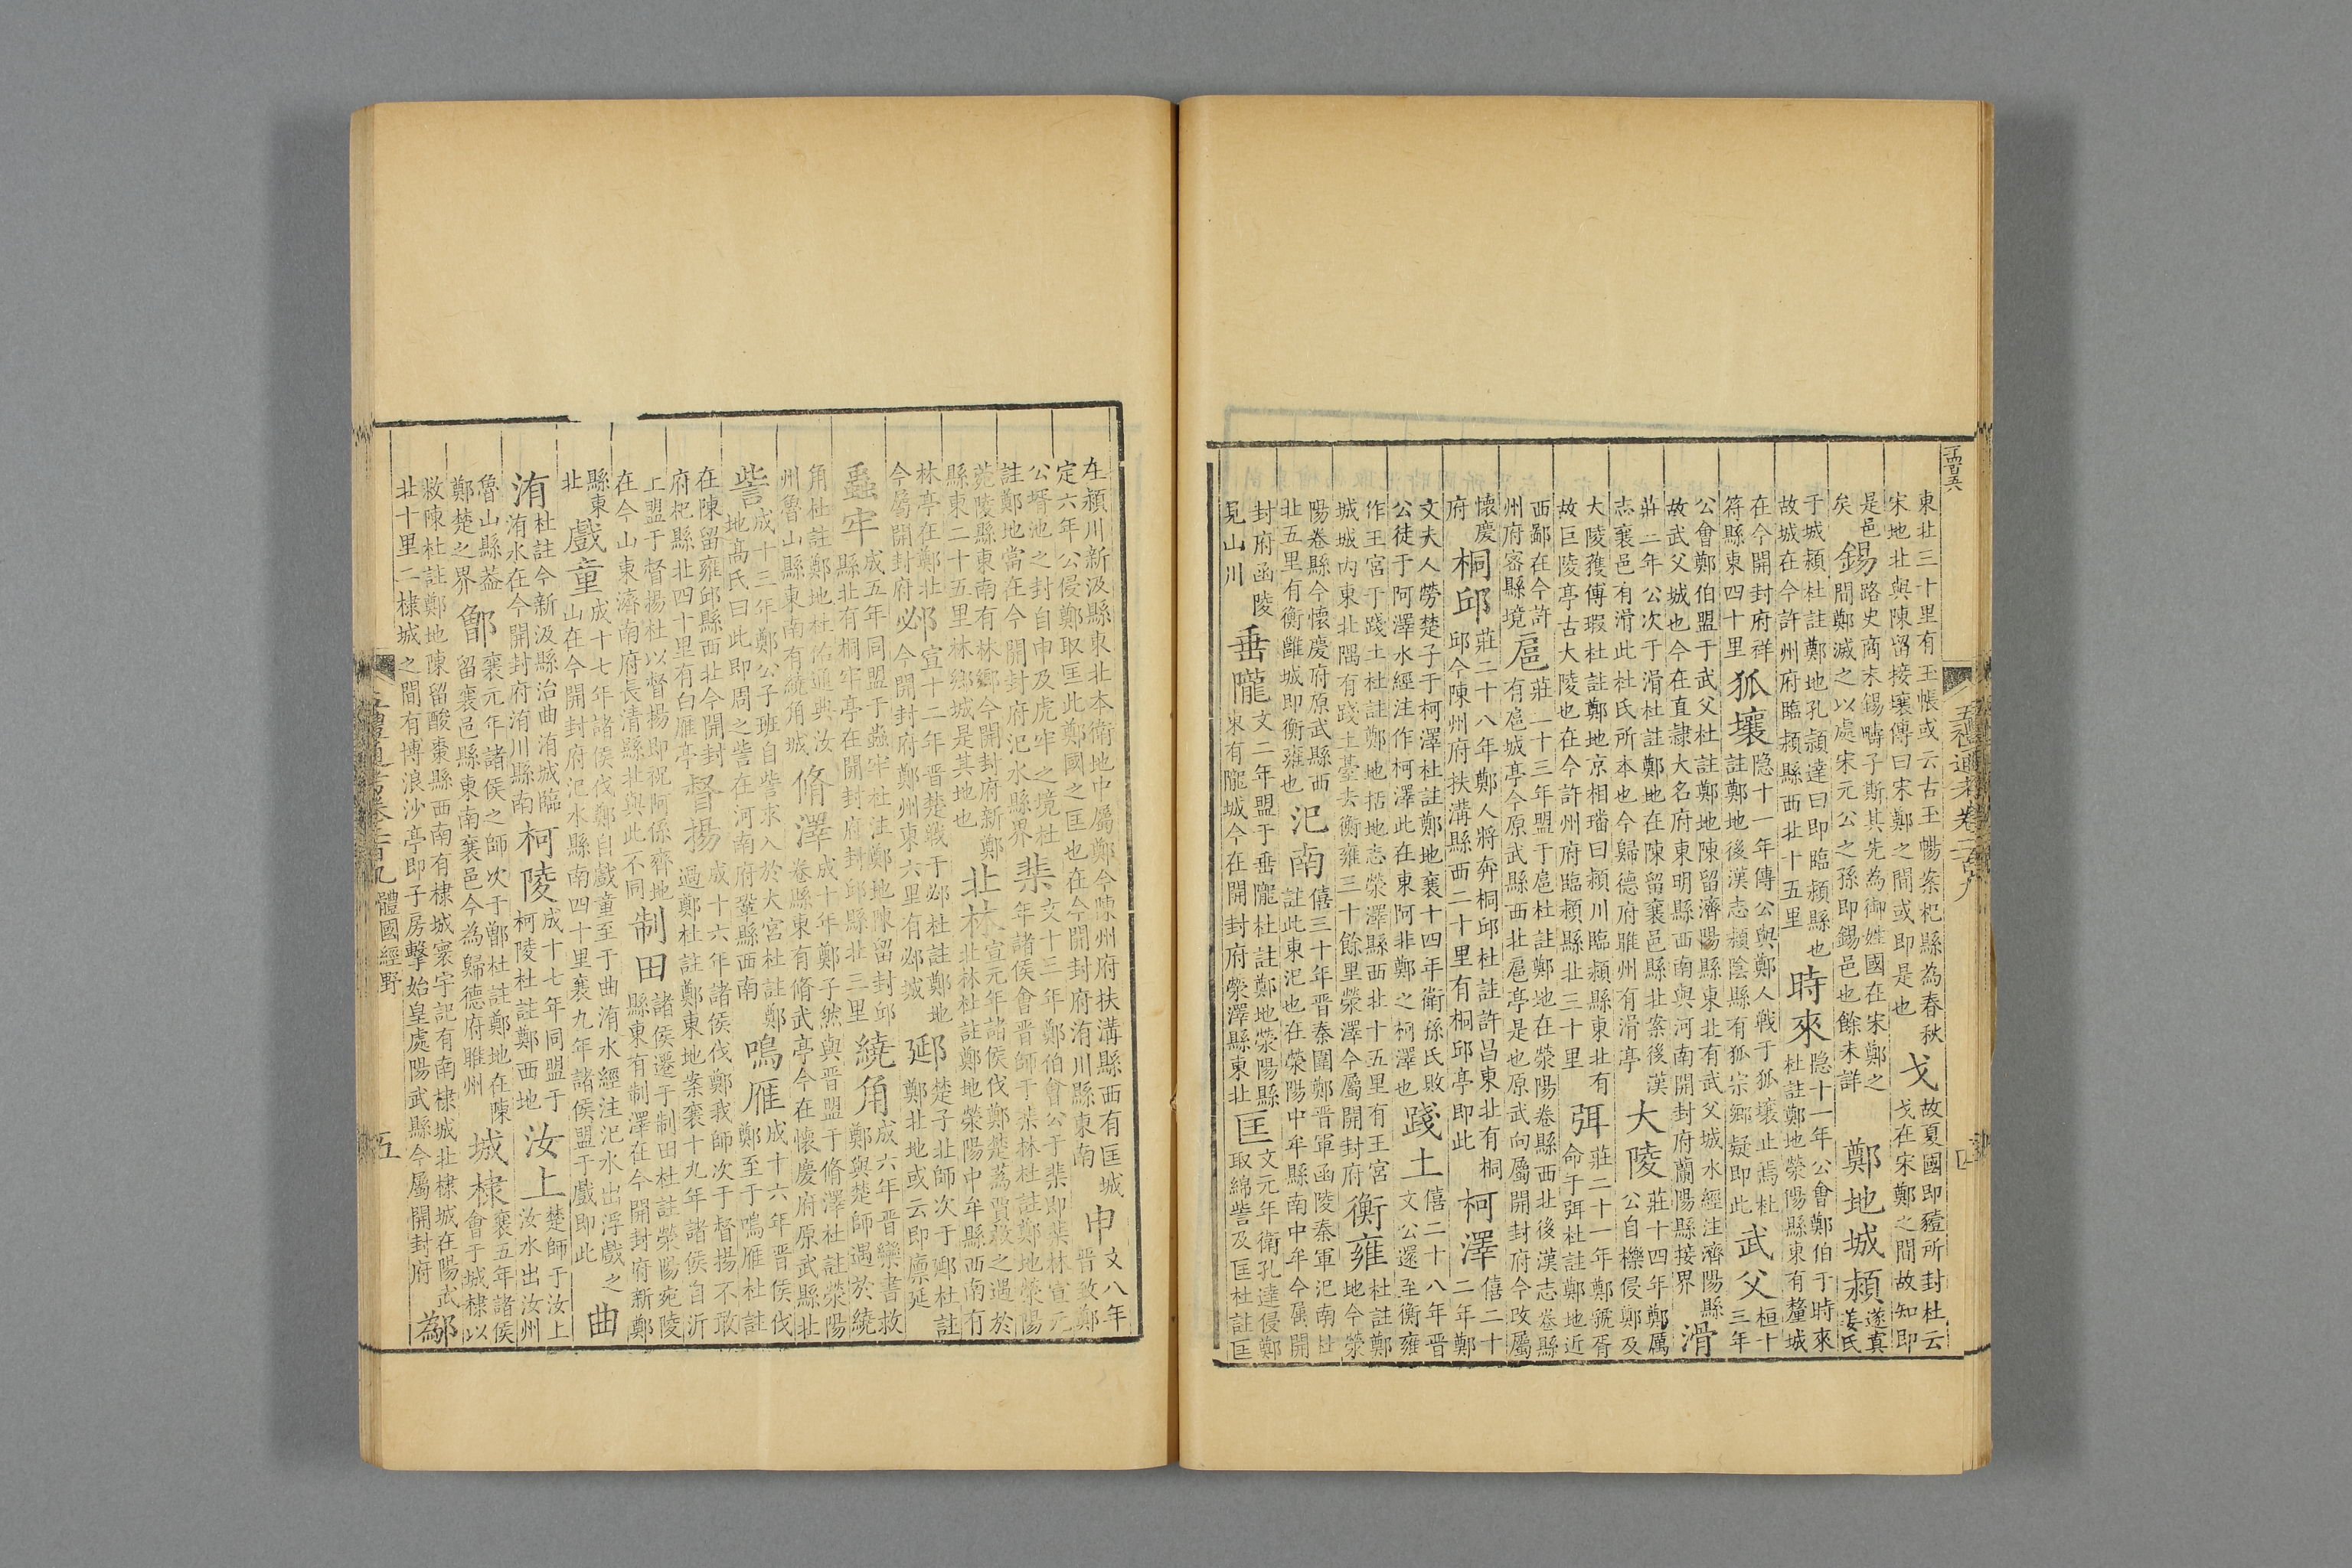 五禮通考卷二百九
東北三十里有玉帳或云古玉暢案杞縣為春秋
宋地北與陳留接壤傳曰宋鄭之間或即是也
戈
故夏國即豷所封杜云
戈在宋鄭之間故知即
是邑
矣
錫
路史商末錫疇子斯其先為御姓國在宋鄭之
間鄭滅之以處宋元公之孫即錫邑也餘未詳
鄭地城潁
遂寘
姜氏
于城潁杜註鄭地孔潁達曰即臨潁縣也
故城在今許州府臨潁縣西北十五里
時來
隐十一年公會鄭伯于時來
杜註鄭地滎陽縣東有釐城
在今開封府祥
符縣東四十里
狐壤
隐十一年傳公與鄭人戰于狐壤止焉杜
註鄭地後漢志潁陰縣有狐宗鄉疑即此
武父
桓十
三年
公會鄭伯盟于武父杜註鄭地陳留濟陽縣東北有武父城水經注濟陽縣
故武父城也今在直隷大名府東明縣西南與河南開封府蘭陽縣接界
滑
莊二年公次于滑杜註鄭地在陳留襄邑縣北案後漢
志襄邑有滑此杜氏所本也今歸德府睢州有滑亭
大陵
莊十四年鄭厲
公自櫟侵鄭及
大陵獲傅瑕杜註鄭地京相璠曰潁川臨潁縣東北有
故巨陵亭古大陵也在今許州府臨潁縣北三十里
弭
莊二十一年鄭虢胥
命于弭杜註鄭地近
西鄙在今許
州府密縣境
扈
莊二十三年盟于扈杜註鄭地在滎陽卷縣西北後漢志卷縣
有扈城亭今原武縣西北扈亭是也原武向屬開封府今改屬
懷慶
府
桐邱
莊二十八年鄭人將奔桐邱杜註許昌東北有桐
邱今陳州府扶溝縣西二十里有桐邱亭即此
柯澤
僖二十
二年鄭
文夫人勞楚子于柯澤杜註鄭地襄十四年衛孫氏敗
公徒于阿澤水經注作柯澤此在東阿非鄭之柯澤也
踐土
僖二十八年晋
文公還至衡雍
作王宮于踐土杜註鄭地括地志滎澤縣西北十五里有王宮
城城内東北隅有踐土臺去衡雍三十餘里滎澤今屬開封府
衡雍
杜註鄭
地今滎
陽卷縣今懷慶府原武縣西
北五里有衡雝城即衡雍也
汜南
僖三十年晋秦圍鄭晋軍函陵秦軍汜南杜
註此東汜也在滎陽中牟縣南中牟今属開
封府函陵
見山川
垂隴
文二年盟于垂隴杜註鄭地滎陽縣
東有隴城今在開封府滎澤縣東北
匡
文元年衛孔達侵鄭
取綿訾及匡杜註匡
在潁川新汲縣東北本衛地中屬鄭今陳州府扶溝縣西有匡城
定六年公侵鄭取匡此鄭國之匡也在今開封府洧川縣東南
申
文八年
晋致鄭
公壻池之封自申及虎牢之境杜
註鄭地當在今開封府汜水縣界
棐
文十三年鄭伯會公于棐即棐林宣元
年諸侯會晋師于棐林杜註鄭地滎陽
菀陵縣東南有林鄉今開封府新鄭
縣東二十五里林鄉城是其地也
北林
宣元年諸侯伐鄭楚蒍賈救之遇於
北林杜註鄭地滎陽中牟縣西南有
林亭在鄭北
今屬開封府
邲
宣十二年晋楚戰于邲杜註鄭地
今開封府鄭州東六里有邲城
郔
楚子北師次于郔杜註
鄭北地或云即廩延
蟲牢
成五年同盟于蟲牢杜注鄭地陳留封邱
縣北有桐牢亭在開封府封邱縣北三里
繞角
成六年晋欒書救
鄭與楚師遇於繞
角杜註鄭地杜佑通典汝
州魯山縣東南有繞角城
脩澤
成十年鄭子然與晋盟于脩澤杜註滎陽
卷縣東有脩武亭今在懷慶府原武縣北
訾
成十三年鄭公子班自訾求入於大宮杜註鄭
地高氏曰此即周之訾在河南府鞏縣西南
鳴雁
成十六年晋侯伐
鄭至于鳴雁杜註
在陳留雍邱縣西北今開封
府杞縣北四十里有白雁亭
督揚
成十六年諸侯伐鄭我師次于督揚不敢
過鄭杜註鄭東地案襄十九年諸侯自沂
上盟于督揚杜以督揚即祝阿係齊地
在今山東濟南府長清縣北與此不同
制田
諸侯遷于制田杜註滎陽宛陵
縣東有制澤在今開封府新鄭
縣東
北
戲童
成十七年諸侯伐鄭自戲童至于曲洧水經注汜水出浮戲之
山在今開封府汜水縣南四十里襄九年諸侯盟于戲即此
曲
洧
杜註今新汲縣治曲洧城臨
洧水在今開封府洧川縣南
柯陵
成十七年同盟于
柯陵杜註鄭西地
汝上
楚師于汝上
汝水出汝州
魯山縣葢
鄭楚之界
鄫
襄元年諸侯之師次于鄫杜註鄭地在陳
留襄邑縣東南襄邑今為歸德府睢州
城棣
襄五年諸侯
會于城棣以
救陳杜註鄭地陳留酸棗縣西南有棣城寰宇記有南棣城北棣城在陽武
北十里二棣城之間有博浪沙亭即子房擊始皇處陽武縣今屬開封府
鄬
體國經野
五